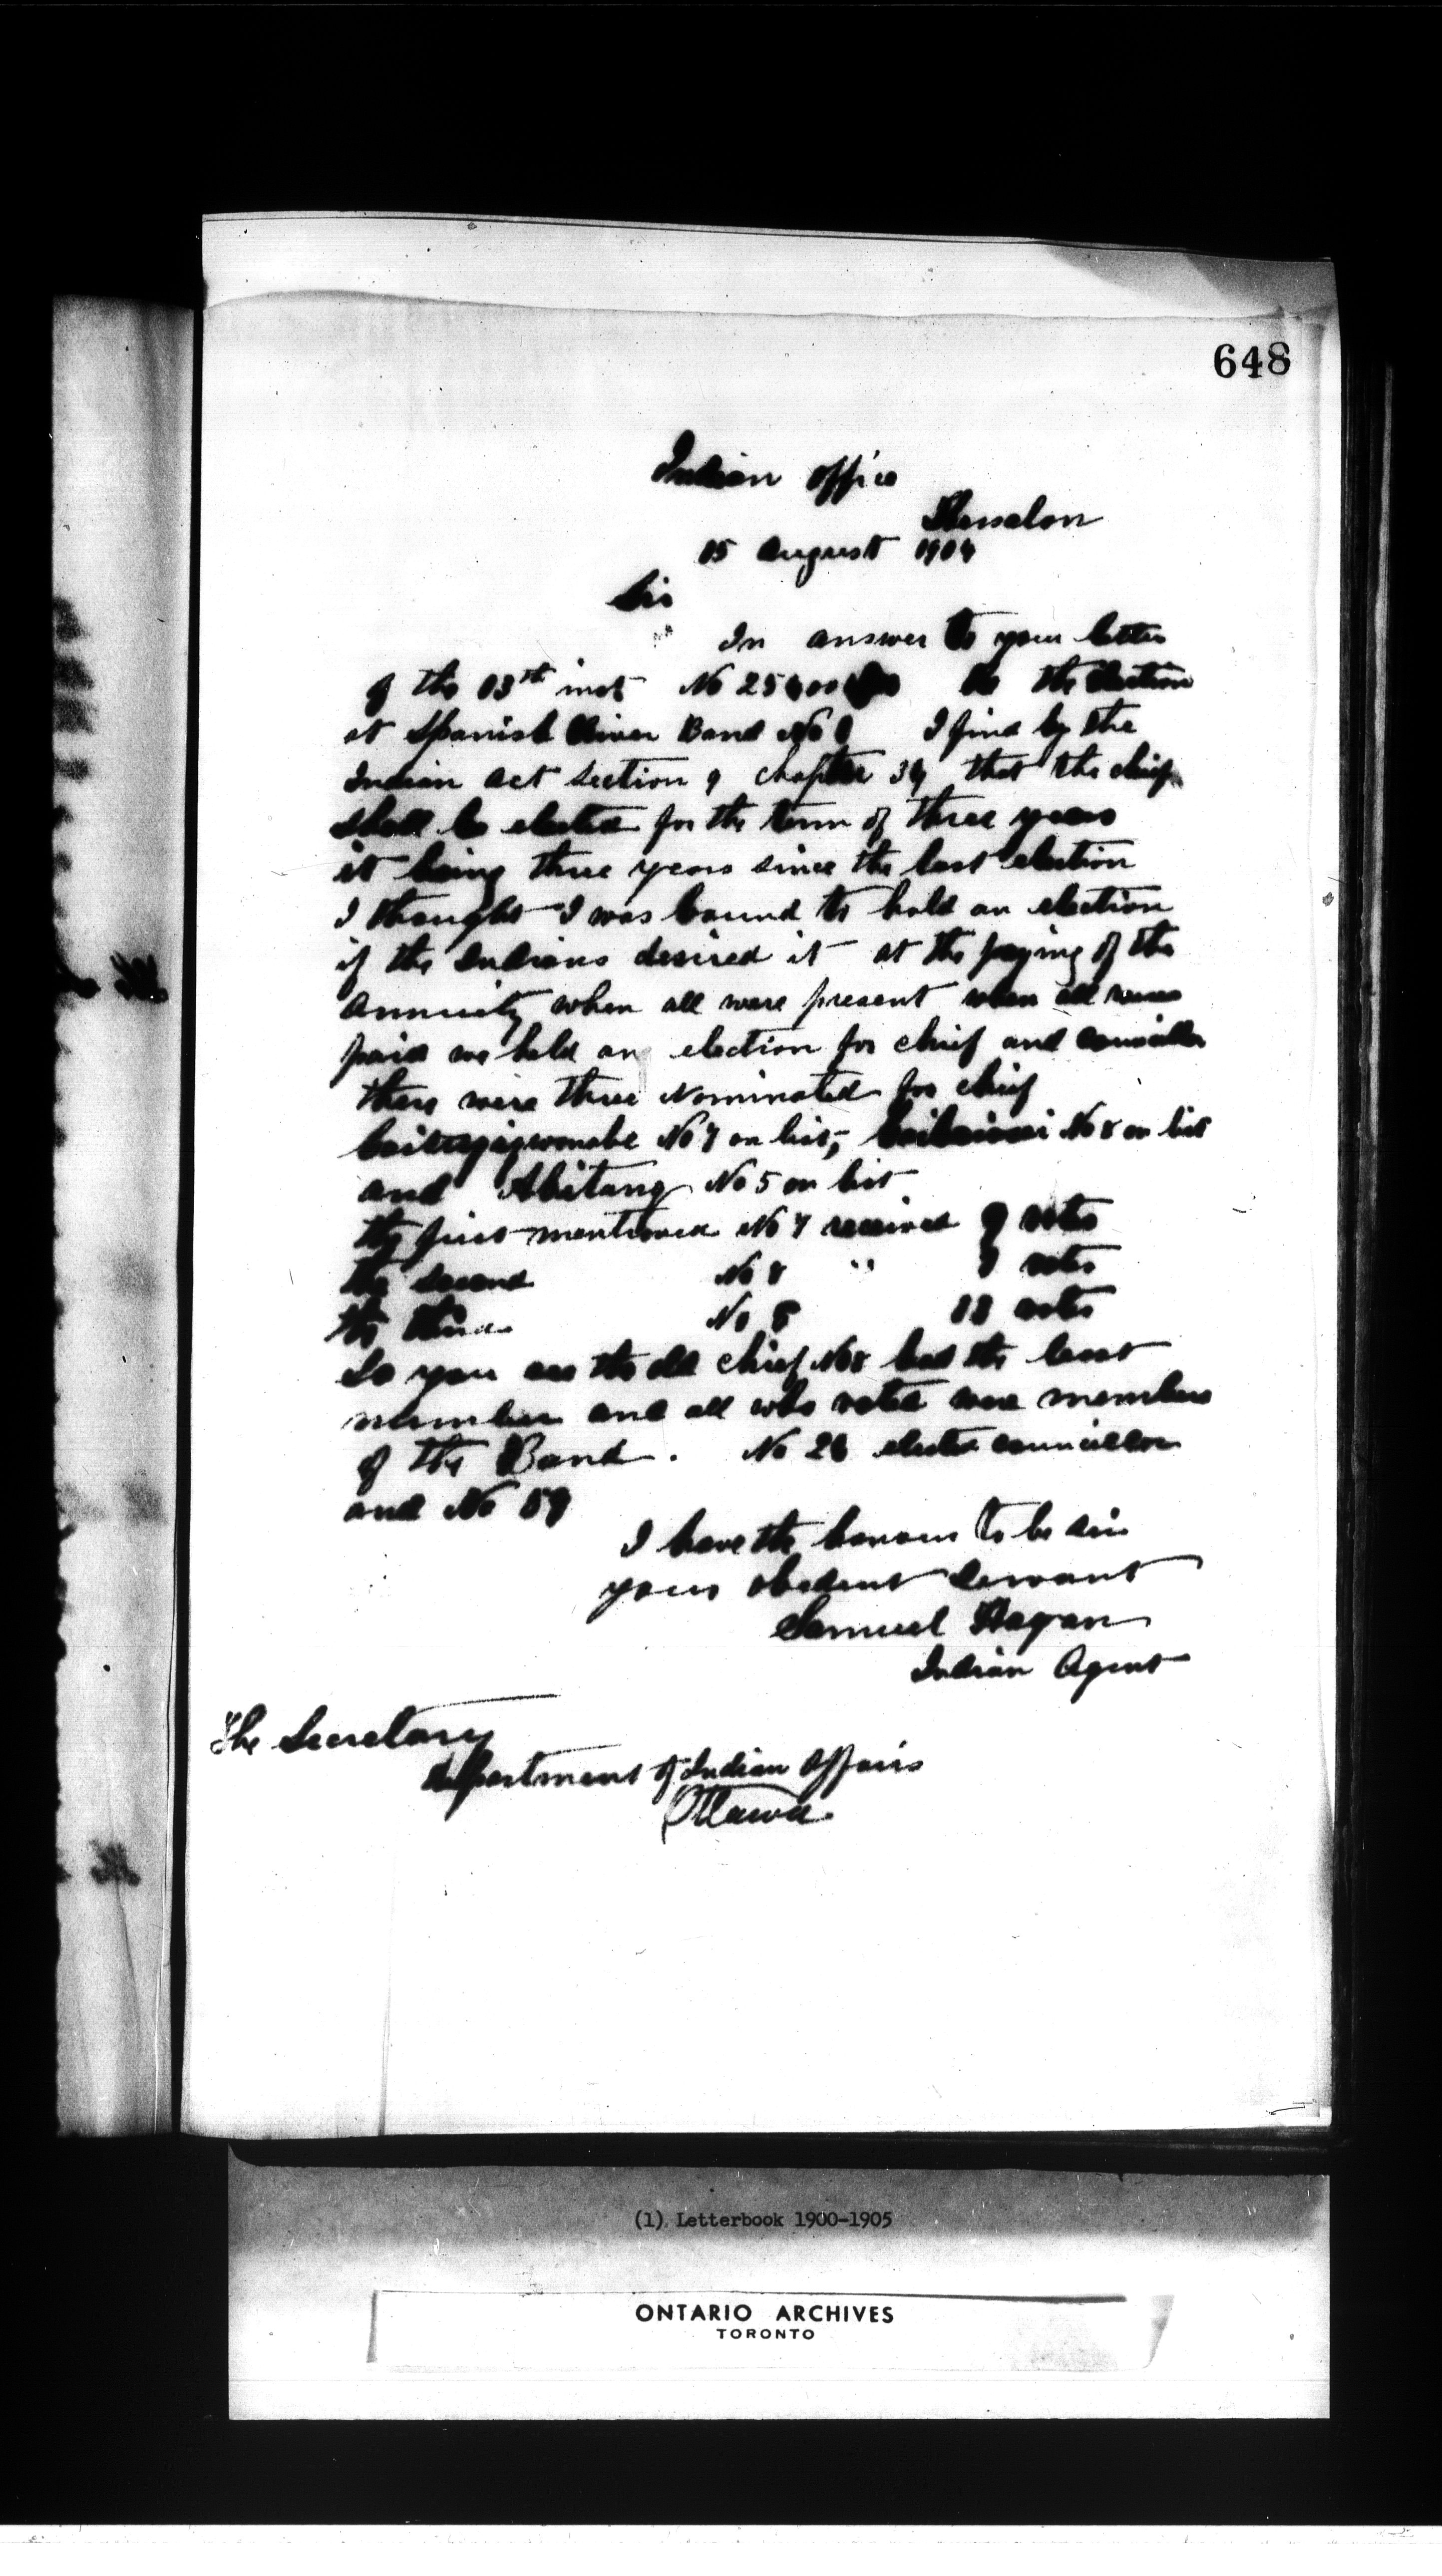 648
Indian Office
Thessalon
15 August 1904
Sir
In answer to your letter
of the 13th inst No the Election
at Spanish River Band No 1 I find by the
Indian act Section 9 chapter 34 that the chief
shall be elected for the term of three years
it being three years since the last election
I thought I was bound to hold an election
if the Indians desired it at the paying of the
annuity when all were present when all were
paid we held an election for chief and councillor
there were three Nominated for chief
No 7 on list, No 8 on list
and Abitang No 5 on list
the first mentioned No 7 received 9 votes
the second No 8 " votes
the third No 5 votes
So you see the old chief No 8 had the least
number and all who voted were members
of the Band. No elected councillor
and No
I have the honour to be Sir
your obedient servant
Samuel Hagan
Indian Agent
The Secretary
Department of Indian Affairs
Ottawa
(1) Letterbook 1900-1905
ONTARIO ARCHIVES
TORONTO